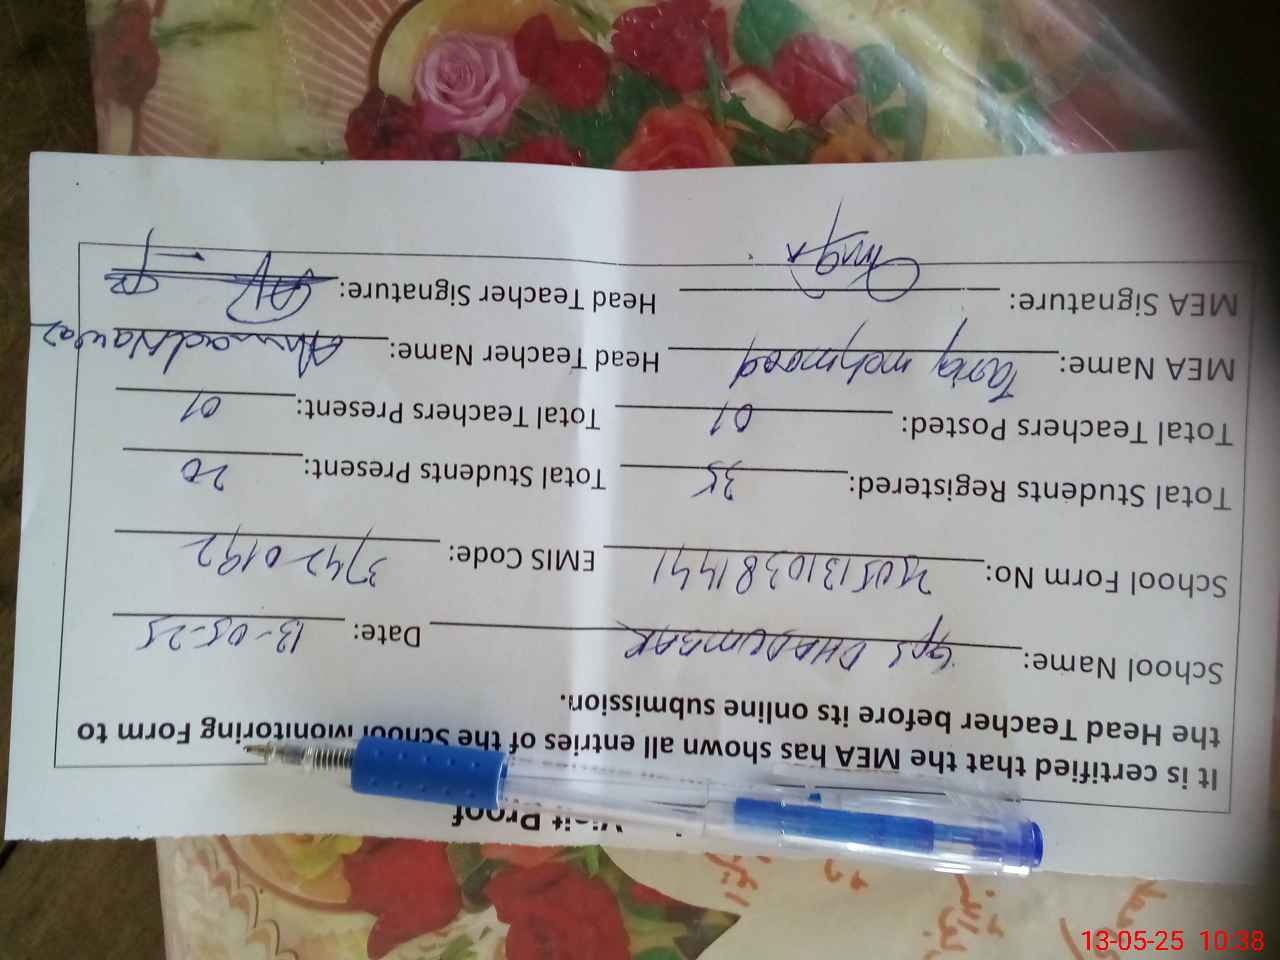 Visit Proof
It is certified that the MEA has shown all entries of the School Monitoring Form to
the Head Teacher before its online submission.
School Name: GPS DHADUMBAR Date: 13-05-25
School Form No: EMIS Code: 37420192
Total Students Registered: 35 Total Students Present: 20
Total Teachers Posted: 01 Total Teachers Present: 01
MEA Name: Tariq mehmood Head Teacher Name: Ahmad Nawaz
MEA Signature: Head Teacher Signature:
13-05-25 10:38